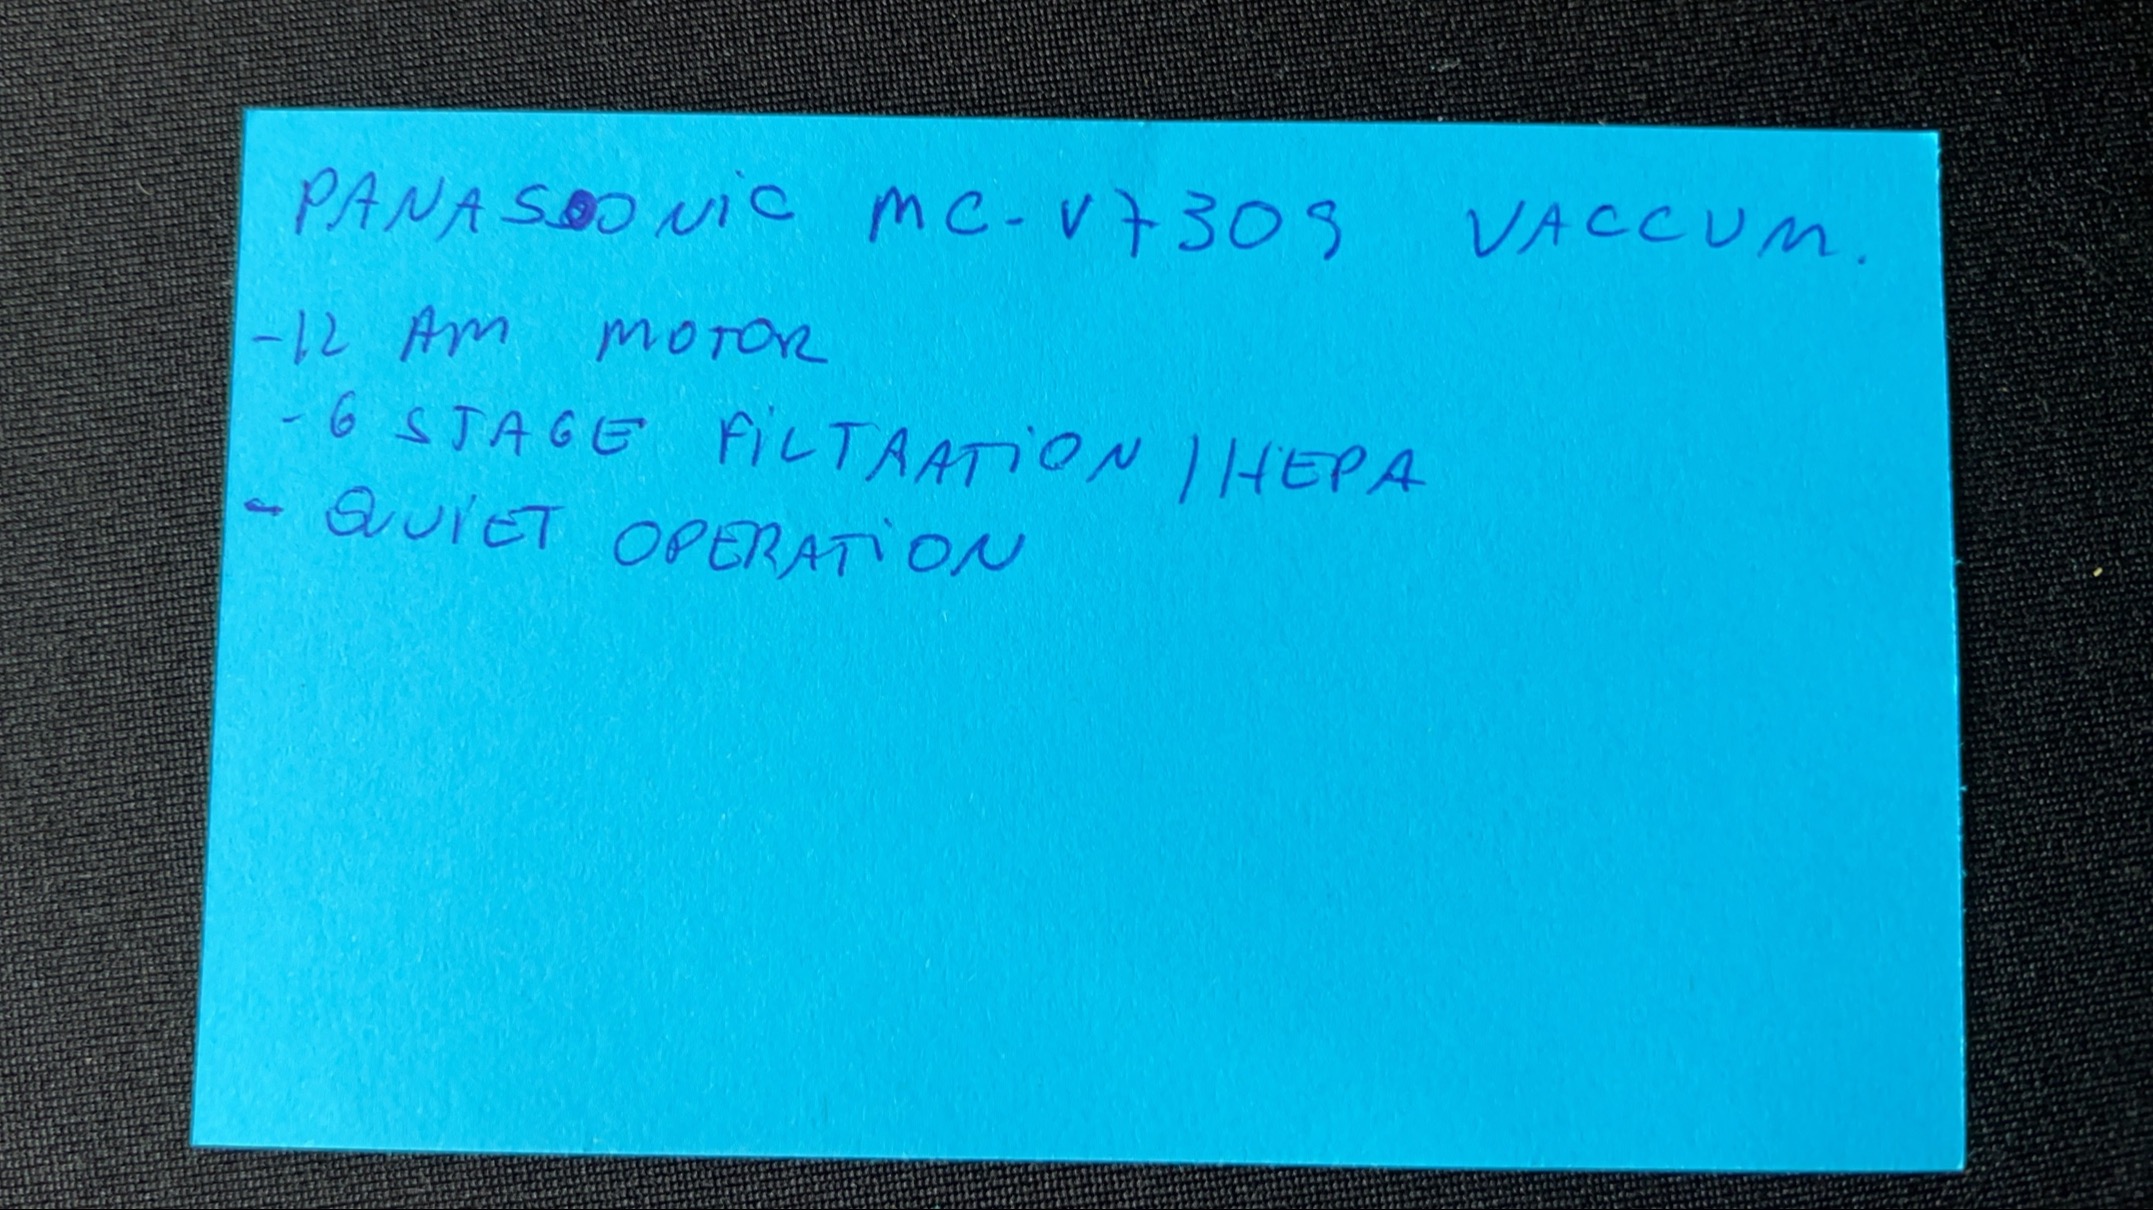 PANASONIC MC-V7309 VACCUM.
-12 AM MOTOR
-6 STAGE FILTRATION / HEPA
- QUIET OPERATION